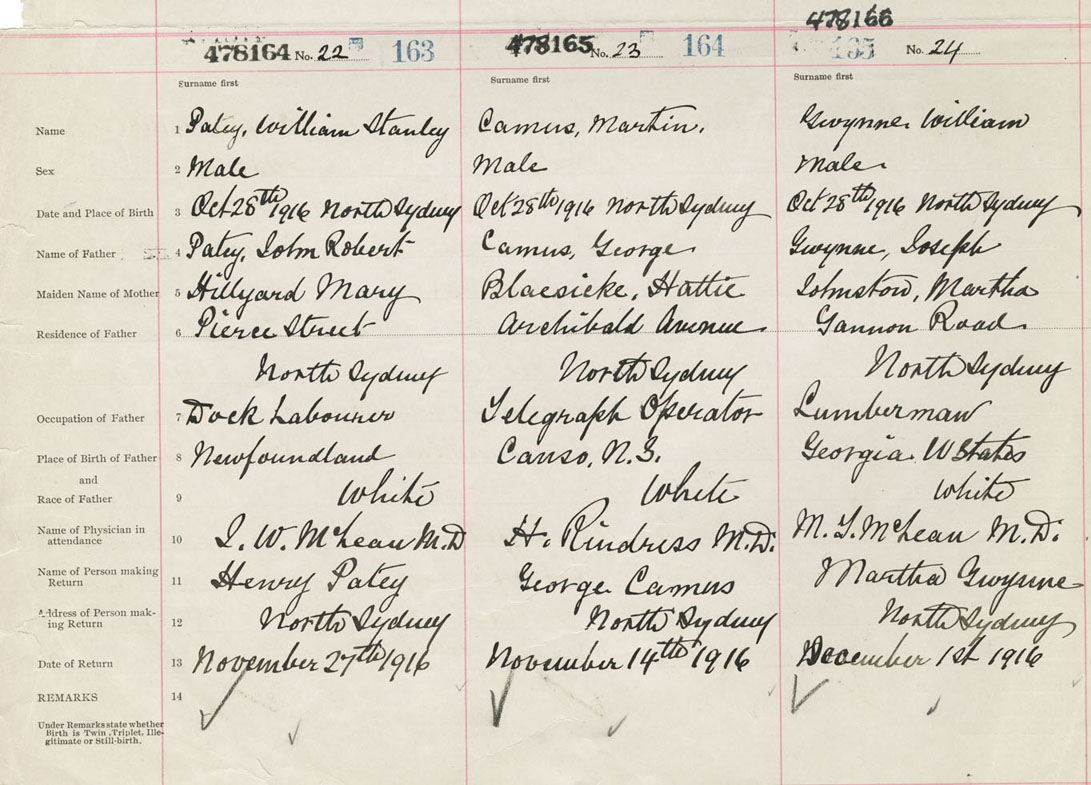 478166
478164 No. 22 163 478165 No. 23 164 165 No. 24
Surname first Surname first Surname first
Name 1 Patey, William Stanley Camus, Martin. Gwynne William
Sex 2 Male Male Male
Date and Place of Birth 3 Oct 28th 1916 North Sydney Oct 28th 1916 North Sydney Oct 28th 1916 North Sydney
Name of Father 4 Patey, John Robert Camus, George Gwynne, Joseph
Maiden Name of Mother 5 Hillyard Mary Blaesicke, Hattie Johnston, Martha
Residence of Father 6 Pierce Street Archibald Avenue. Gannon Road
North Sydney North Sydney North Sydney
Occupation of Father 7 Dock Labourer Telegraph Operator Lumberman
Place of Birth of Father 8 Newfoundland Canso, N.S. Georgia. U States
and
Race of Father 9 White White White
Name of Physician in attendance 10 J. W. McLean M.D H. Rindress M.D. M. T. McLean M.D.
Name of Person making Return 11 Henry Patey George Camus Martha Gwynne
Address of Person mak-
ing Return 12 North Sydney North Sydney North Sydney
Date of Return 13 November 27th 1916 November 14th 1916 December 1st 1916
REMARKS 14
Under Remarks state whether
Birth is Twin, Triplet, Ille-
gitimate or Still-birth.